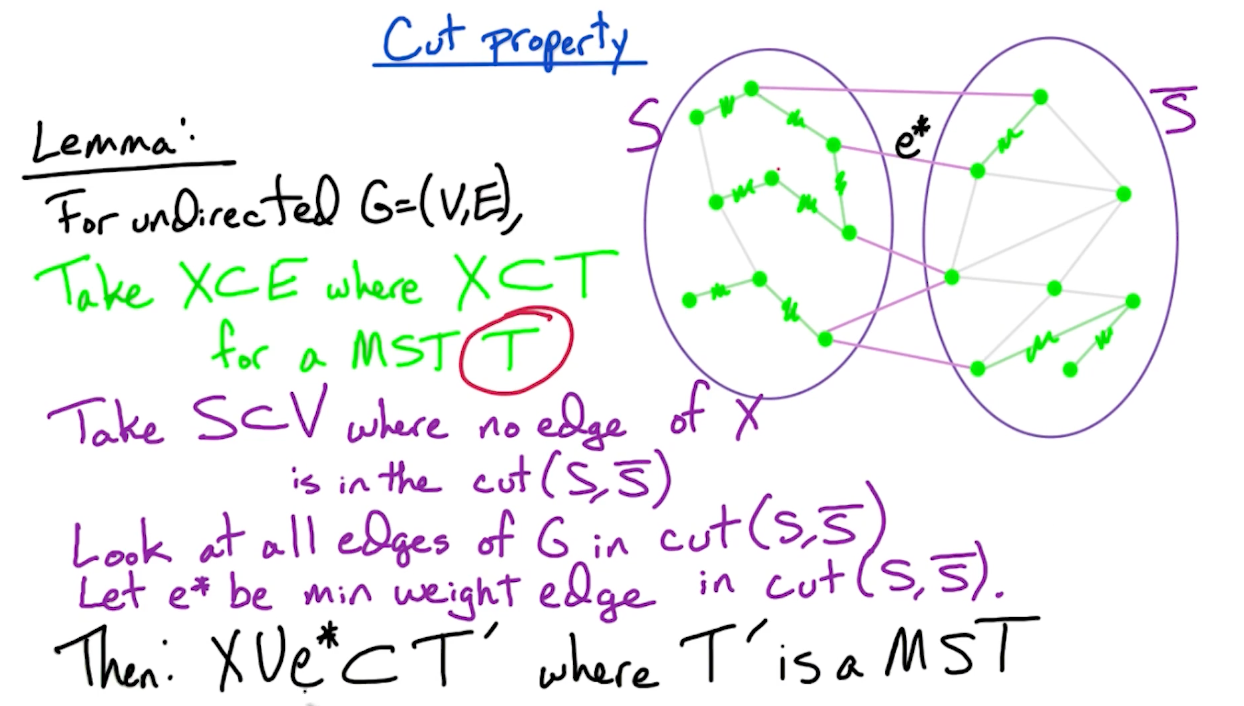 Cut property
Lemma:
For undirected G=(V,E),
Take X⊂E where X⊂T
for a MST T
Take S⊂V where no edge of X
is in the cut(S,S̅)
Look at all edges of G in cut(S,S̅)
Let e* be min weight edge in cut(S,S̅).
Then: X∪e*⊂T′ where T′ is a MST
S
e*
S̅